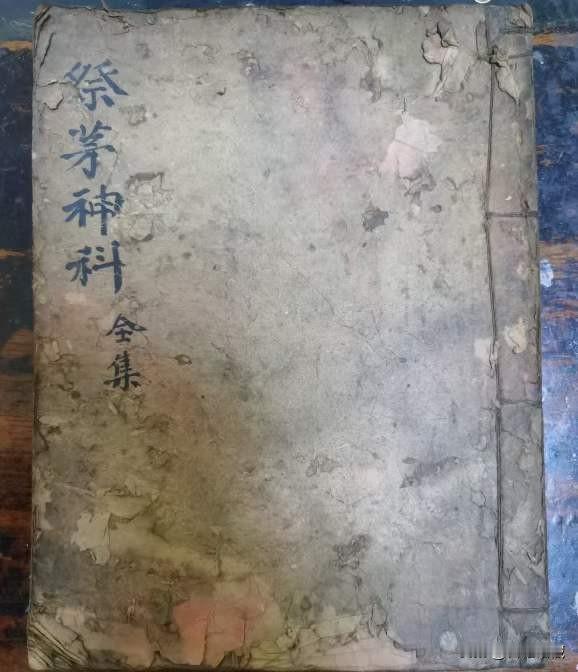 祭茅神科
全集